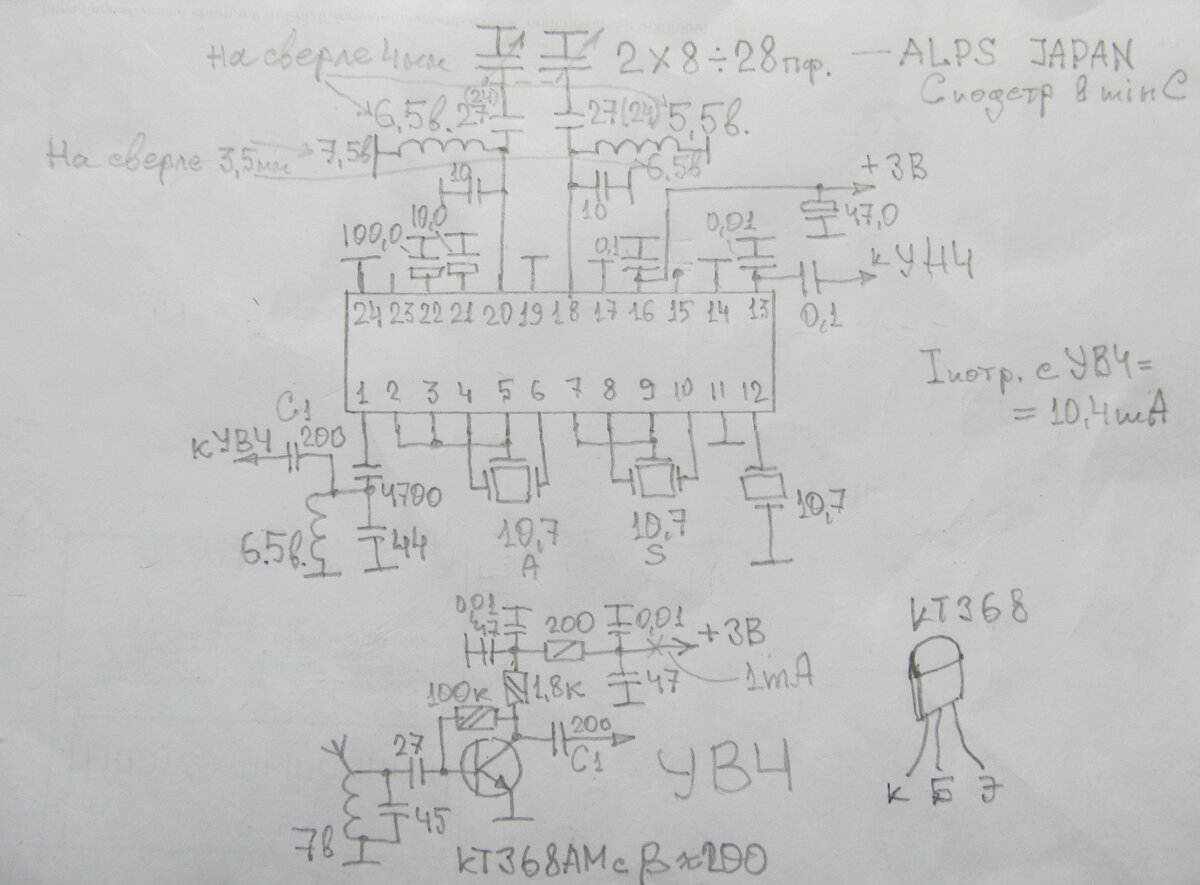 На сверле 4мм 2×8÷28пф. — ALPS JAPAN
С подстр в min C
(24)
6,5в. 27 27(24) 5,5в.
На сверле 3,5мм 7,5в 6,5в
10 10 +3В
100,0 10,0 0,1 0,01 47,0
кУНЧ
24 23 22 21 20 19 18 17 16 15 14 13
0,1
Iпотр. с УВЧ=
= 10,4mA
1 2 3 4 5 6 7 8 9 10 11 12
С1
кУВЧ 200
4700
10,7
6.5в. 44
10,7 10,7
А S
0,01
47 200 0,01 +3В
КТ368
100к 1,8к 47 1mA
27 200
С1 УВЧ
К Б Э
45
7в
КТ368АМ с β≈200